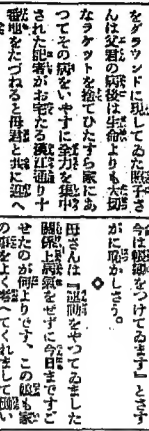 をグラウンドに現してゐた照子さ
んは父君の病後は生命よりも大切
なラケットを捨てひたすら家にあ
つてその病をいやすに全力を集中
された記者がお宅たる漢江通り十
番地をたづねると母君と共に迎へ
今は帳綴をつけてゐます』とさす
がに恥かしさう。
◇
母さんは『運動をやつてゐました
関係上病氣をせずに今日まですご
せたのが何よりです、この娘も家
の事をよく考へてくれまして